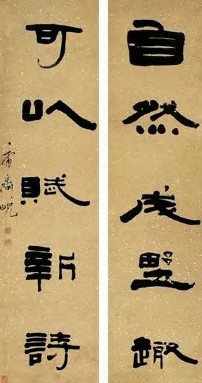 自然成野趣
可以賦新詩